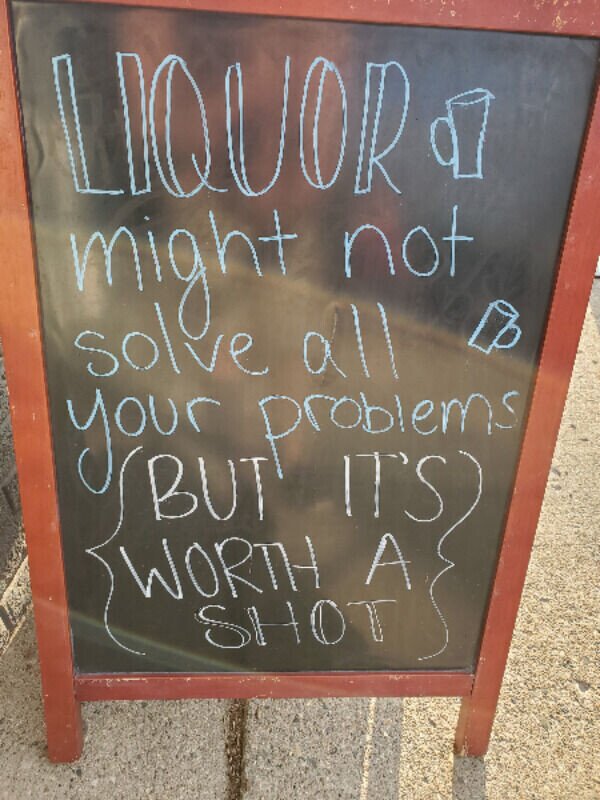 LIQUOR
might not
solve all
your problems
BUT IT'S
WORTH A
SHOT